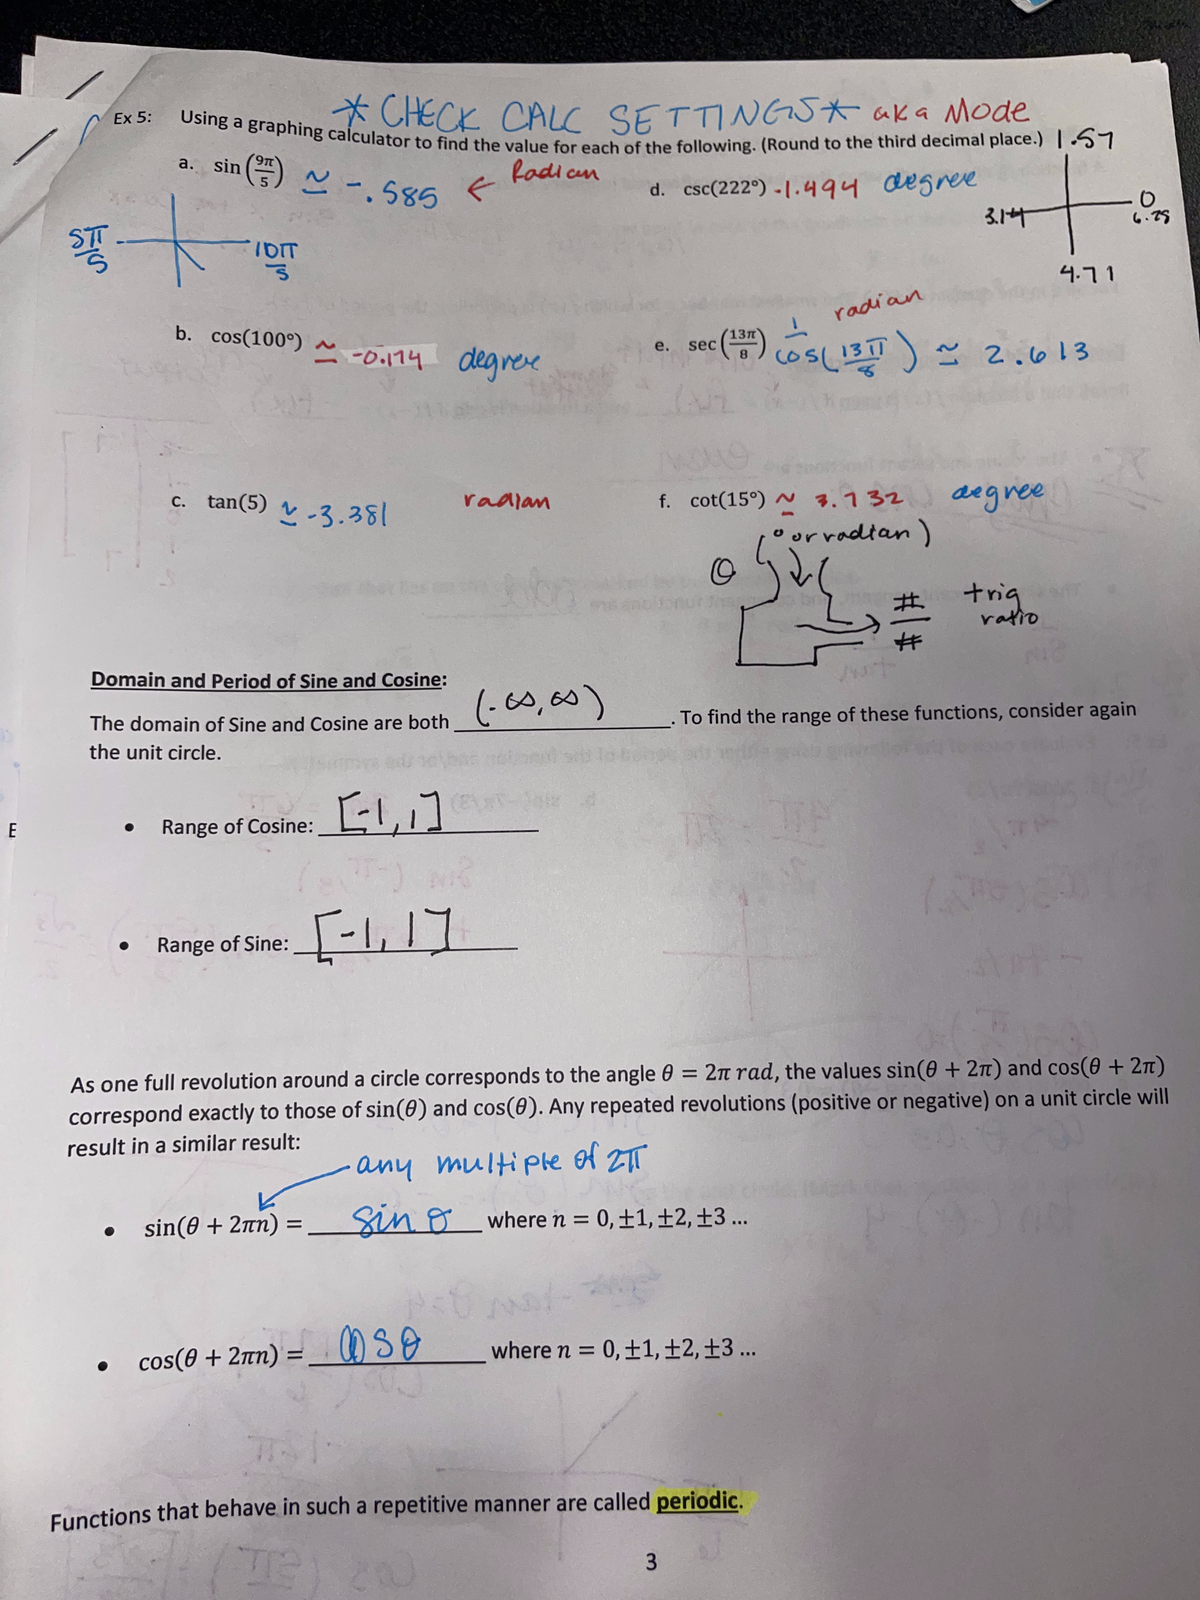 *CHECK CALC SETTINGS* aka Mode
Ex 5: Using a graphing calculator to find the value for each of the following. (Round to the third decimal place.)
a. sin(9π/5) ≃ -.585 ← Radian
5π/5 10π/5
d. csc(222°) -1.494 degree
1.57
3.14 0
6.28
4.71
b. cos(100°) ≃ -0.174 degree
e. sec(13π/8) 1/cos(13π/8) ≃ 2.613
radian
c. tan(5) ≃ -3.381 radian
f. cot(15°) ≃ 3.732 degree
θ (° or radian)
#/# trig
ratio
Domain and Period of Sine and Cosine:
The domain of Sine and Cosine are both (-∞,∞). To find the range of these functions, consider again
the unit circle.
E
• Range of Cosine: [-1,1]
• Range of Sine: [-1,1]
As one full revolution around a circle corresponds to the angle θ = 2π rad, the values sin(θ + 2π) and cos(θ + 2π)
correspond exactly to those of sin(θ) and cos(θ). Any repeated revolutions (positive or negative) on a unit circle will
result in a similar result:
any multiple of 2π
• sin(θ + 2πn) = sin θ where n = 0, ±1, ±2, ±3 ...
• cos(θ + 2πn) = cos θ where n = 0, ±1, ±2, ±3 ...
Functions that behave in such a repetitive manner are called periodic.
3